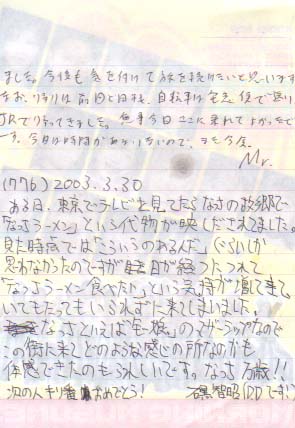 ました。今後も気を付けて旅を続けたいと思います
なお、帰りは前回と同様、自転車は宅急便で送り
JRで帰ってきました。無事今日ここに来れてよかったで
す。今日は時間があまりないので、また今度。
Mr.
(776) 2003.3.30
ある日、東京でテレビを見てたらなさの故郷で
「なっさラーメン」という代物が映しだされてました。
見た時点では「こういうのあるんだ」ぐらいしか
思わなかったのですが日が経つにつれて
「なっさラーメン食べたい」という気持が増して来て
いてもたってもいられずに来てしまいました。
なっさといえば「モー娘。」の
この街に来てどのような感じの所なのかも
体感できたのもうれしいです。なっさ万歳!!
次の人キリ番おめでとう!
智昭(DDです!)